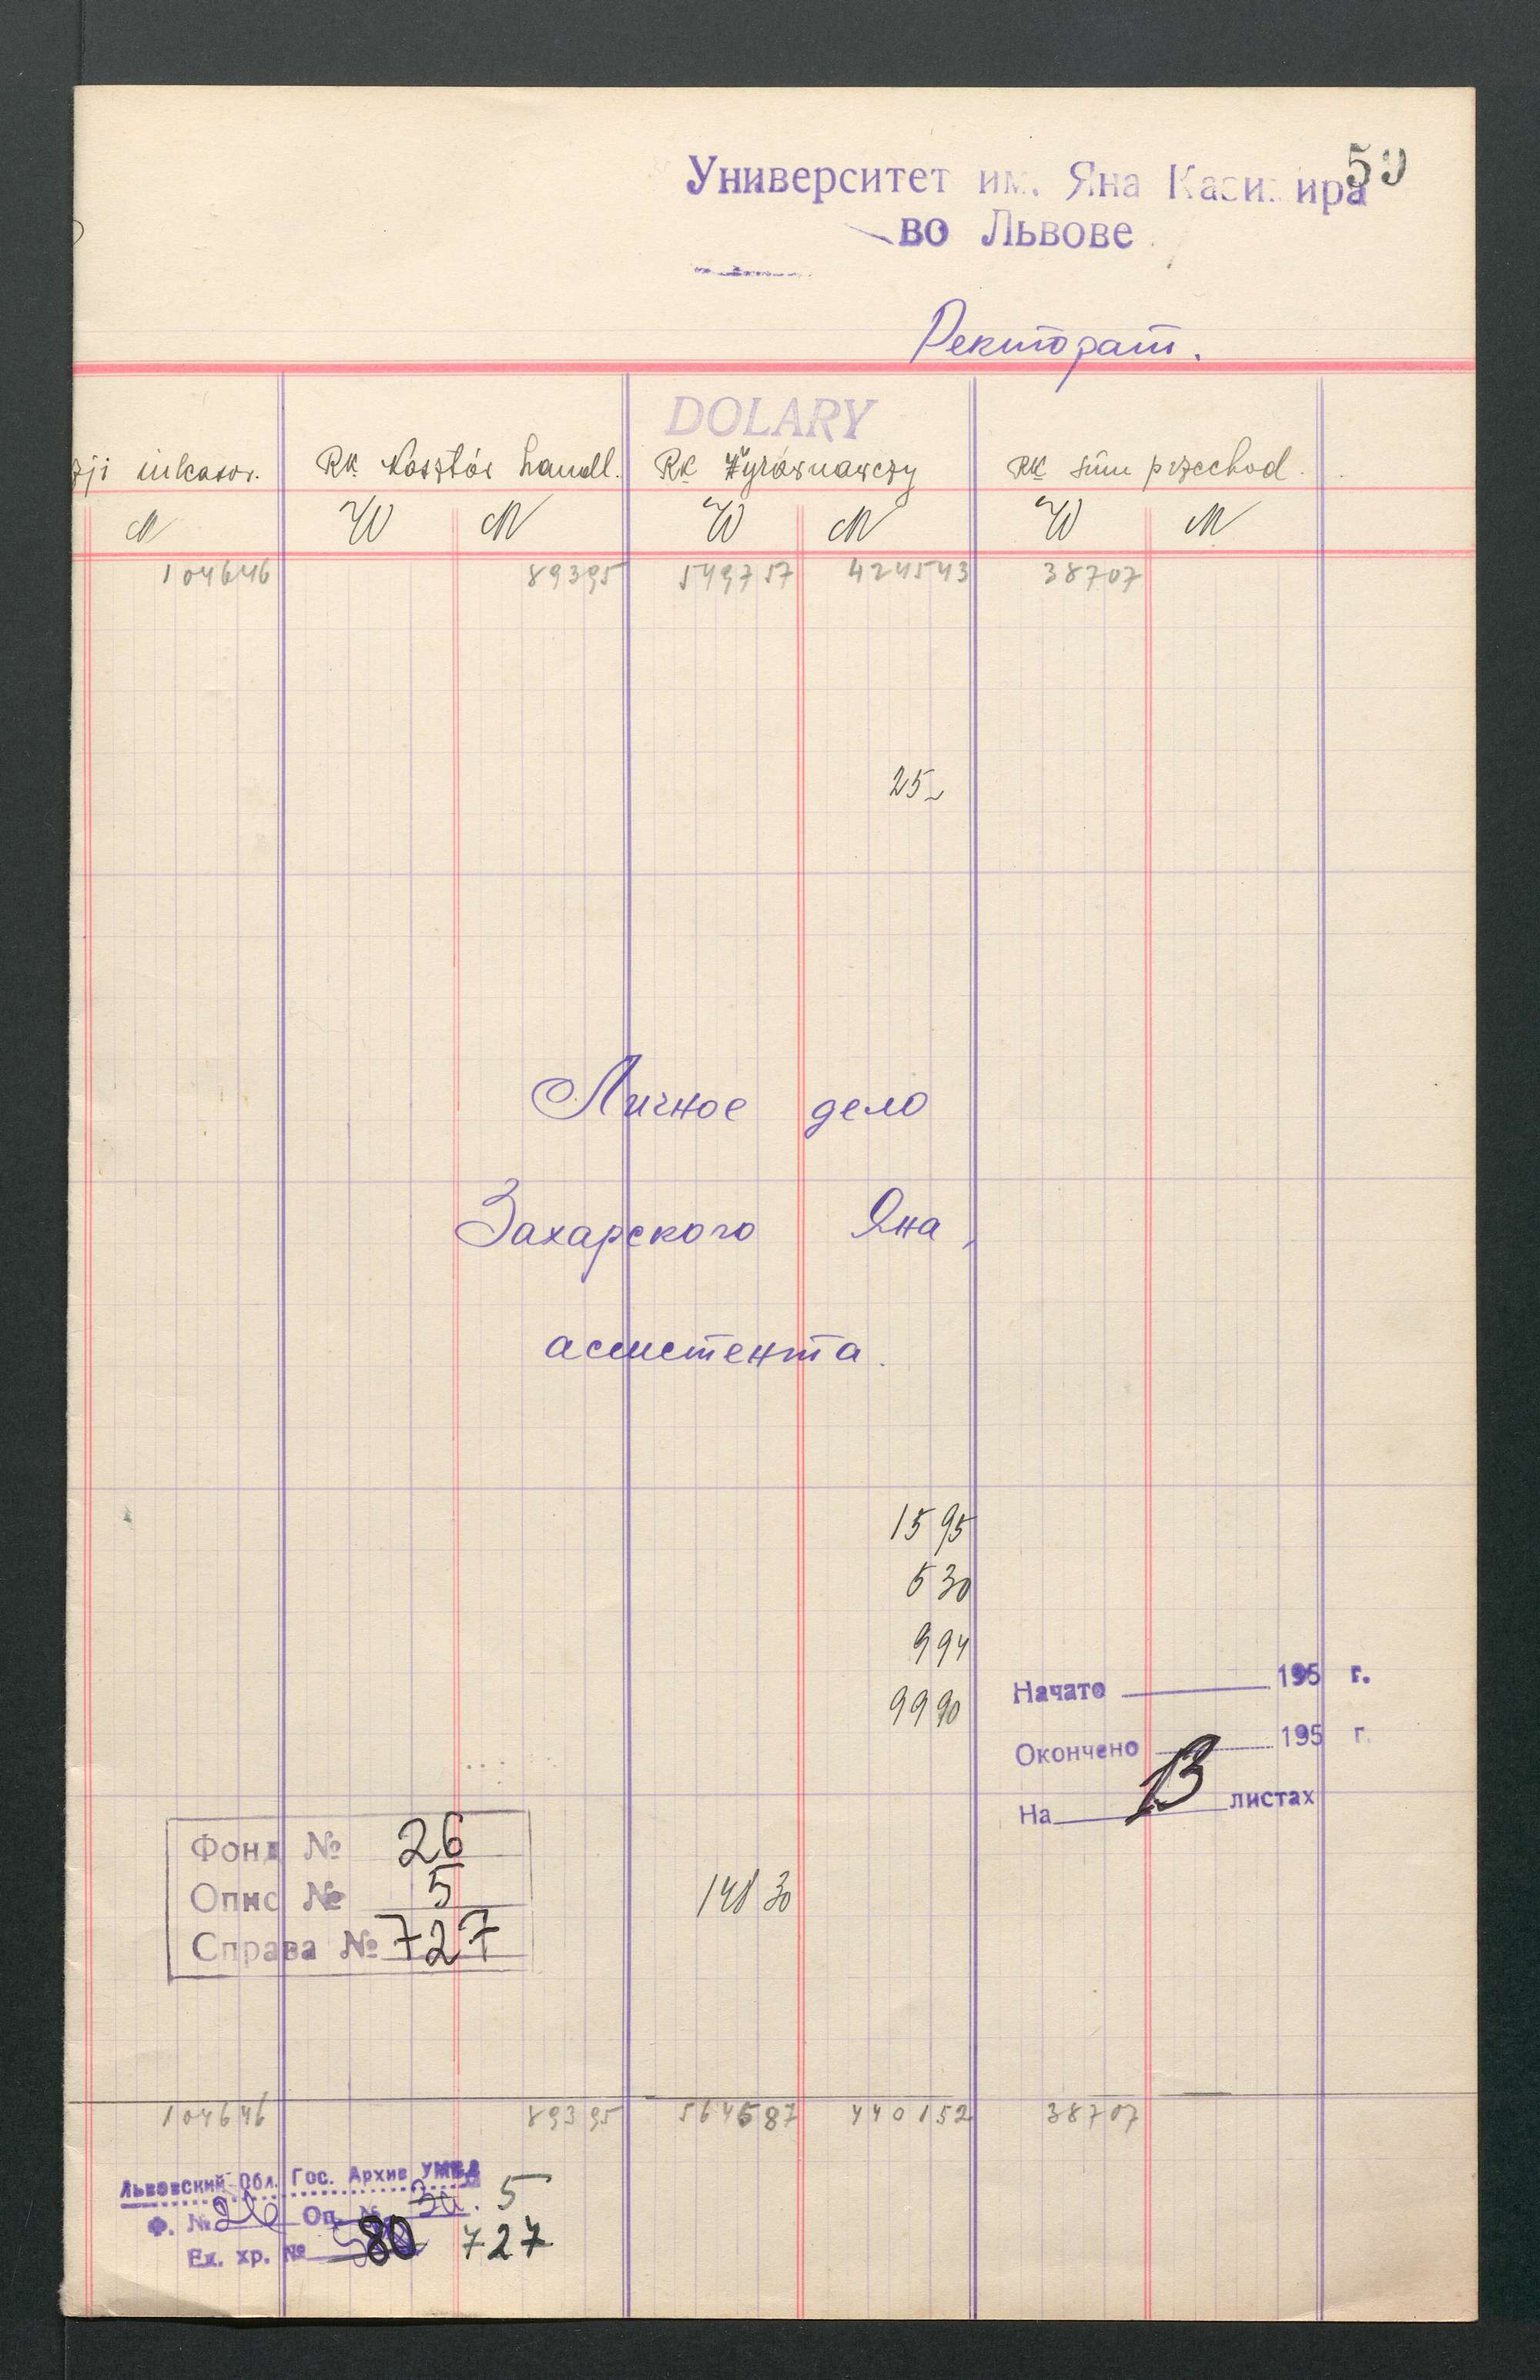 59
Университет им. Яна Казимира
во Львове
Ректорат.
DOLARY
zji inkasow. Rk kosztów handl. Rk Wyrównawczy Rk sum przechod.
M W M W M W M
104646 89395 549757 424543 38707
25
Личное дело
Захарского Яна,
ассистента.
1595
630
994
9990
Начато 195 г.
Окончено 195 г.
На 13 листах
Фонд № 26
Опис № 5
Справа № 727
148 30
104646 89395 564587 440152 38707
Львовский Обл. Гос. Архив УМВД
Ф. № 26 Оп. № 5
Ед. хр. № 80 727